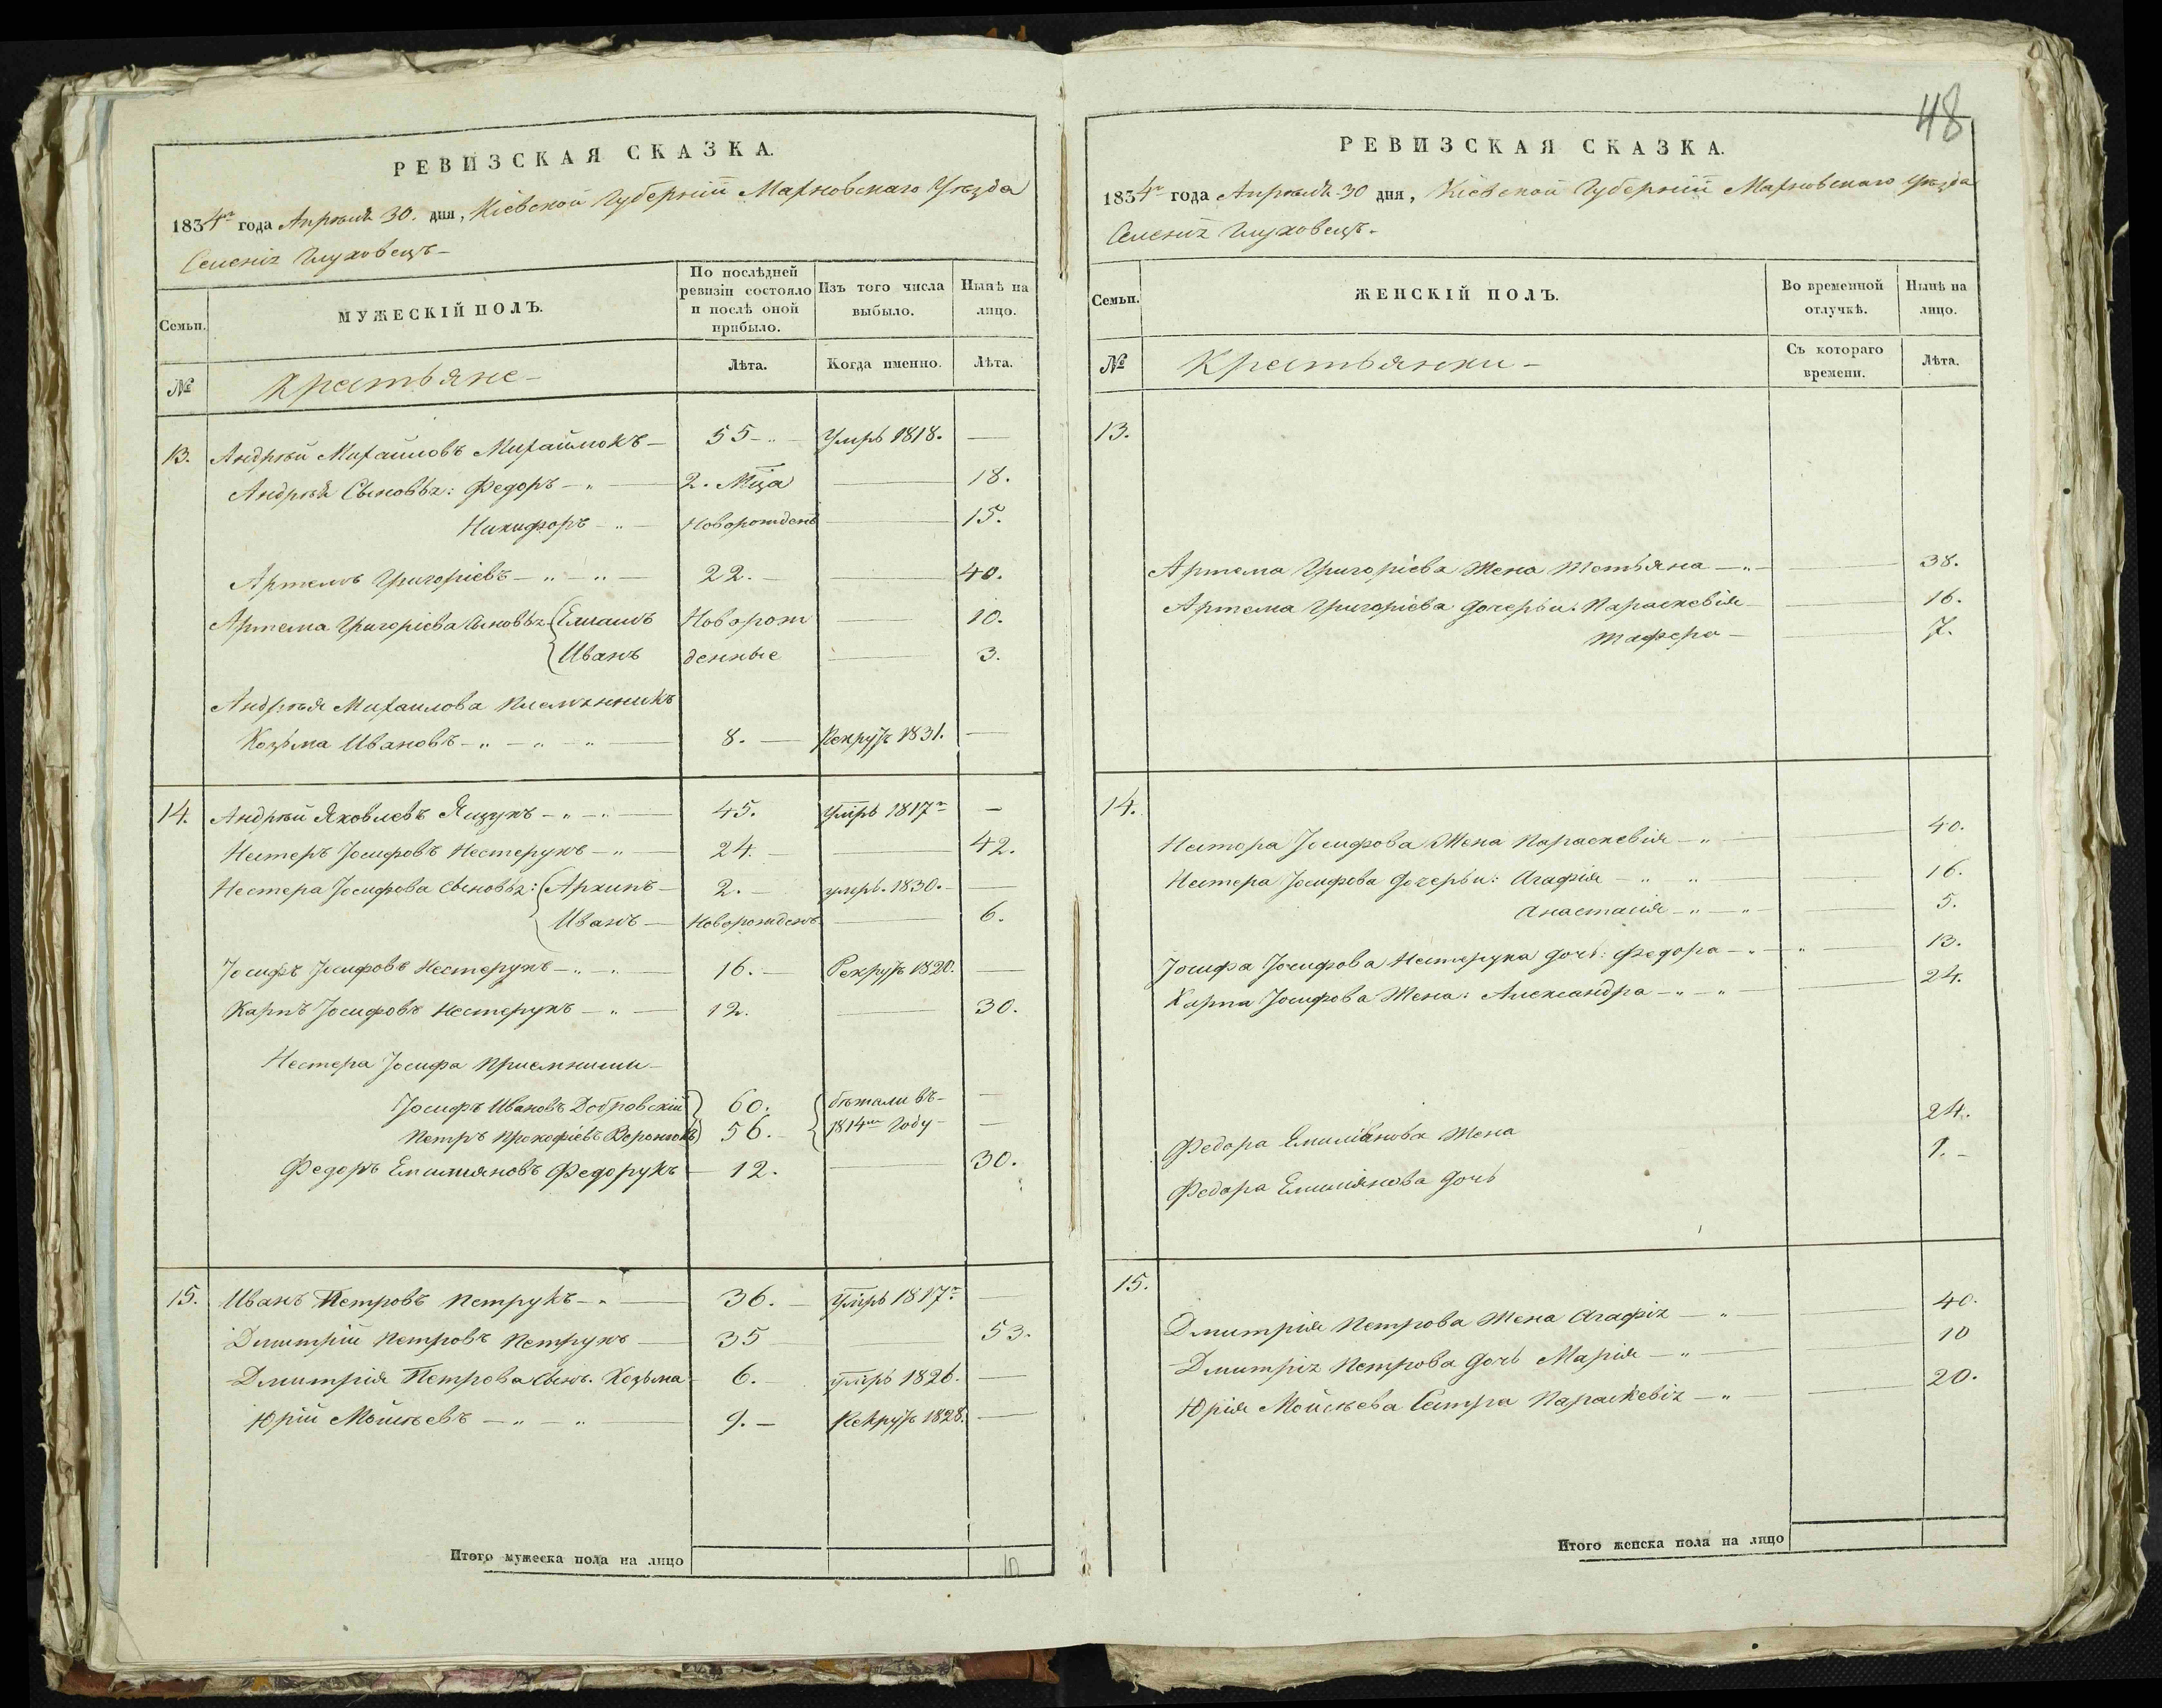 РЕВИЗСКАЯ СКАЗКА.
1834го года Апрѣля 30. дня, Кіевской Губерніи Махновскаго Уѣзда
Селенія Глуховецъ
Семьи.
МУЖЕСКІЙ ПОЛЪ.
По послѣдней ревизіи состояло и послѣ оной прибыло.
Изъ того числа выбыло.
Нынѣ на лицо.
№
Крестьяне
Лѣта.
Когда именно.
Лѣта.
13. Андрѣй Михайловъ Михайлюкъ 55 Умрѣ 1818.
Андрѣя Сыновья: Федоръ 2. Мца 18.
Никифоръ Новорожденъ 15.
Артемъ Григоріевъ 22. 40.
Артема Григоріева Сыновья Емелянъ Новорож 10.
Иванъ денные 3.
Андрѣя Михаилова Племянникъ
Козьма Ивановъ 8. Рекрутъ 1831.
14. Андрѣй Яковлевъ Яцукъ 45. Умрѣ 1817го
Нестеръ Іосифовъ Нестерукъ 24. 42.
Нестера Іосифова Сыновья: Архипъ 2. умрѣ. 1830.
Иванъ Новорожденъ 6.
Іосифъ Іосифовъ Нестерукъ 16. Рекрутъ 1820.
Карпъ Іосифовъ Нестерукъ 12. 30.
Нестера Іосифа Приемныши
Іосифъ Ивановъ Добровскій 60. бѣжали въ
Петръ Прокофіевъ 56. 1814м Году
Федоръ Емилияновъ Федорукъ 12. 30.
15. Иванъ Петровъ Петрукъ 36. Умрѣ 1817го
Дмитрій Петровъ Петрукъ 35 53.
Дмитрія Петрова Сынъ. Козьма 6. умрѣ 1826.
Юрій Мойсѣевъ 9. Рекрутъ 1828.
Итого мужеска пола на лицо
48
РЕВИЗСКАЯ СКАЗКА.
1834го года Апрѣля 30 дня, Кіевской Губерніи Махновскаго Уѣзда
Селенія Глуховецъ.
Семьи.
ЖЕНСКІЙ ПОЛЪ.
Во временной отлучкѣ.
Нынѣ на лицо.
№
Крестьянки
Съ котораго времени.
Лѣта.
13.
Артема Григоріева Жена Татьяна 38.
Артема Григоріева Дочерьи: Параскевія 16.
7.
14.
Нестора Іосифова Жена Параскевія 40.
Нестера Іосифова Дочерьи: Агафія 16.
Анастасія 5.
Іосифа Іосифова Нестерука дочь: Федора 13.
Карпа Іосифова Жена: Александра 24.
Федора Емилиянова Жена 24.
Федора Емилиянова Дочь 1.
15.
Дмитрія Петрова Жена Агафія 40.
Дмитрія Петрова Дочь Марія 10
Юрія Мойсѣева Сестра Параскевія 20.
Итого женска пола на лицо